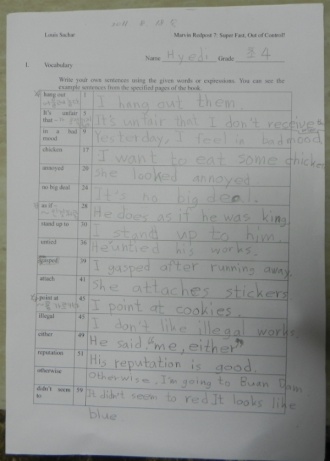 Louis Sachar Marvin Redpost 7: Super Fast, Out of Control!
Name Hyedi Grade 초4
I. Vocabulary
Write your own sentences using the given words or expressions. You can see the
example sentences from the specified pages of the book.
hang out I hang out them.
It's unfair that It's unfair that I don't receives
in a bad mood 9 Yesterday, I feel in bad mood
chicken 17 I want to eat some chicken
annoyed 20 She looked annoyed
no big deal 24 It's no big deal.
as if ~ 28 He does as if he was king
stand up to 30 I stand up to him.
untied 36 He untied his works.
gasped 39 I gasped after running away.
attach 41 She attaches stickers
point at 45 I point at cookies
illegal 45 I don't like illegal works
either 49 He said "me, either"
reputation 51 His reputation is good.
otherwise Otherwise, I'm going to Buan Dam
didn't seem to 59 It didn't seem to red It looks like
blue